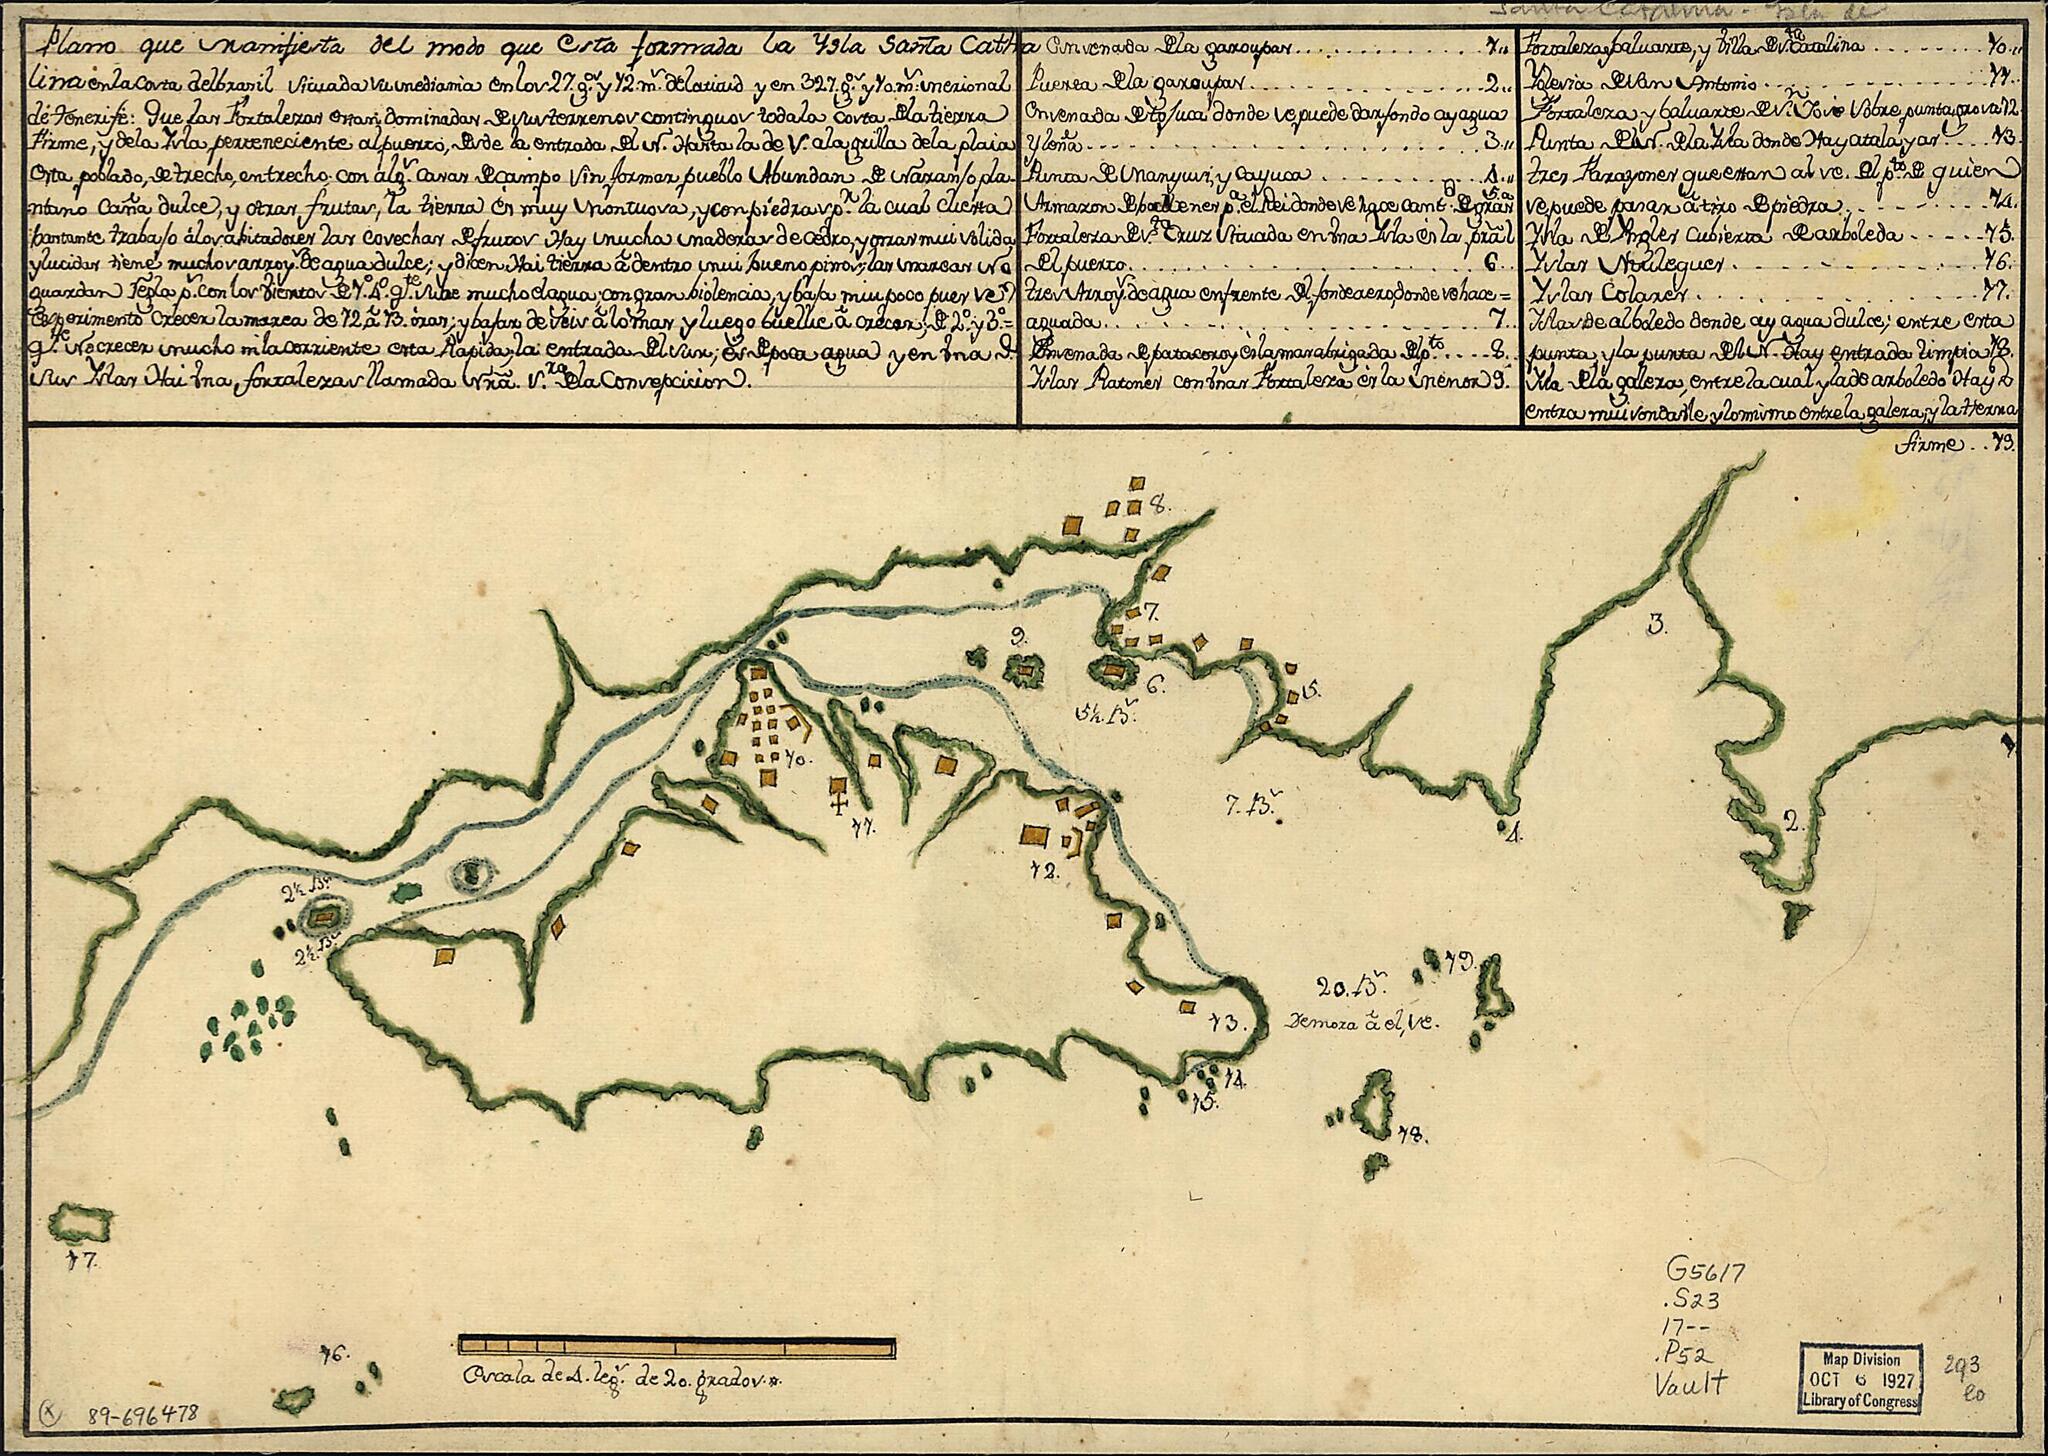 Santa Catarina - Isla de
Plano que manifiesta del modo que esta formada la Ysla Santa Catha
lina en la costa del brasil situada su mediania en los 27. gs. y 12. ms. de latitud y en 327. gs. y 10. ms. merional
de Tenerife: Que las Fortalezas estan dominadas de sus terrenos contiguos toda la costa de la tierra
firme, y de la Isla, perteneciente al puerto, desde la entrada del N. Hasta la de S. a la orilla de la plaia
esta poblado, de trecho, en trecho con algs. casas de campo sin formar pueblo Abundan de Naranjo pla-
ntano Caña dulce, y otras frutas, la tierra es muy montuosa, y con piedras pr. la cual cuesta
bantante trabajo á los abitadores las cosechas de frutos Hay mucha maderas de cedro, y otras mui solida
y lucidas tiene muchos arroys. de agua dulce; y dicen Hai tierra á dentro mui bueno pinos; las mareas no
guardan Regla ps. con los vientos de 1.º 4.º qte. sube mucho el agua con gran biolencia, y baja mui poco pues se
esperimento crecer la marea de 12 á 13. óras; y bajar de seis á lo mas y luego buelbe á crecer; el 2.º y 3.º =
qte. No crecer mucho ni la corriente esta Rapida; la entrada del Sur; es de poca agua y en una de
sus Islas Hai una, fortalezas llamada Nrã. Sra. de la Concepcicion.
Ensenada de la garoupas 1..
Puerta de la garoupas 2..
Ensenada de tojuca; donde se puede dar fondo ay agua
y leña 3..
Punta de Manguis, y cayuca 4..
Armazon de ballenas pa. el Rei donde se hace cantd. de grasa 5.
Fortaleza de Sta. Cruz situada en una Isla es la prãl
del puerto 6.
tres Arroys. de agua enfrente del fondeadero, donde se hace =
aguada 7..
Ensenada de patacoroy es la mas abrigada del pto. 8.
Islas Ratones con unas Fortaleza es la menor 9.
Fortalezas, baluarte, y billa de Sta. Catalina 10..
Iglesia de San Antonio 11..
Fortaleza y baluarte de Sn. Jose sobre, punta grosa 12
Punta del N. de la Isla donde Hay atalayas 13.
tres Farazones que estan al se. del pto. de quien
se puede pasar á tiro de piedra 14.
Isla de Ingles cubierta de arboleda 15.
Islas Moleques 16.
Islas Colares 17.
Islas de alboledo donde ay agua dulce; entre esta
punta, y la punta del N. Hay entrada limpia 18.
Isla de la galera, entre la cual y la de arboledo Hay
entra mui sondable y lo mismo entre la galera, y la tierra
firme . . 19.
8.
7.
9.
6.
5½. Bs.
5.
3.
1
2.
4.
7. Bs.
10.
11.
12.
2½ Bs.
2½. Bs.
20. Bs.
Demora á el, se.
19.
13.
14.
15.
18.
17.
16.
Escala de 4. legs. de 20. grados.
G5617
.S23
17--
.P52
Vault
Map Division
OCT 6 1927
Library of Congress
293
lo
89-696478